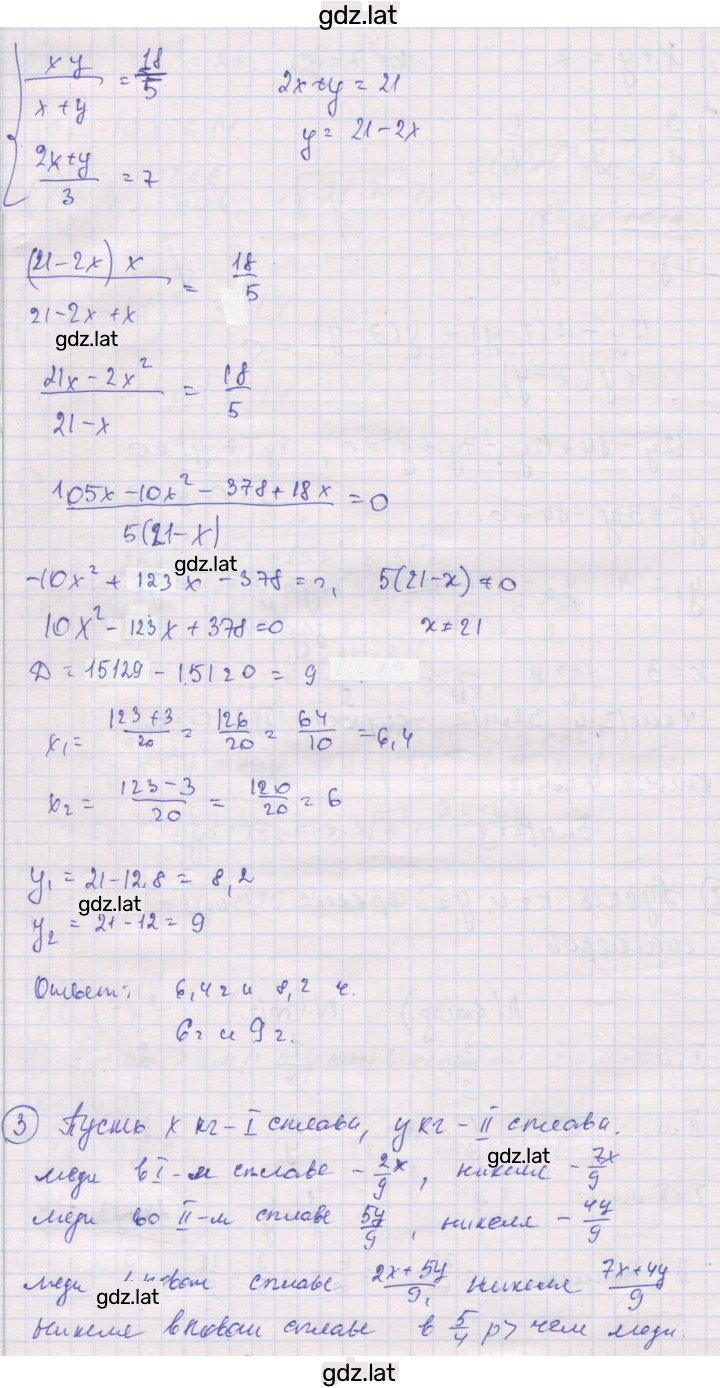 gdz.lat
xy/(x+y) = 18/5    2x+y = 21
(2x+y)/3 = 7    y = 21-2x
(21-2x) x/(21-2x+x) = 18/5
gdz.lat
(21x-2x²)/(21-x) = 18/5
(105x-10x²-378+18x)/(5(21-x)) = 0
gdz.lat
-10x²+123x-378=0,    5(21-x)≠0
10x²-123x+378=0    x≠21
Д = 15129-15120 = 9
x₁ = (123+3)/20 = 126/20 = 64/10 = 6,4
x₂ = (123-3)/20 = 120/20 = 6
y₁ = 21-12,8 = 8,2
gdz.lat
y₂ = 21-12 = 9
Ответ: 6,4 ч и 8,2 ч.
6ч и 9ч.
③ Пусть x кг - I сплава, y кг - II сплава.
gdz.lat
меди в I-м сплаве - 2x/9, никеля - 7x/9
меди во II-м сплаве 5y/9, никеля - 4y/9
меди сплаве (2x+5y)/9, никеля (7x+4y)/9
gdz.lat
никеля в новом сплаве в 5/4 р> чем меди.
gdz.lat